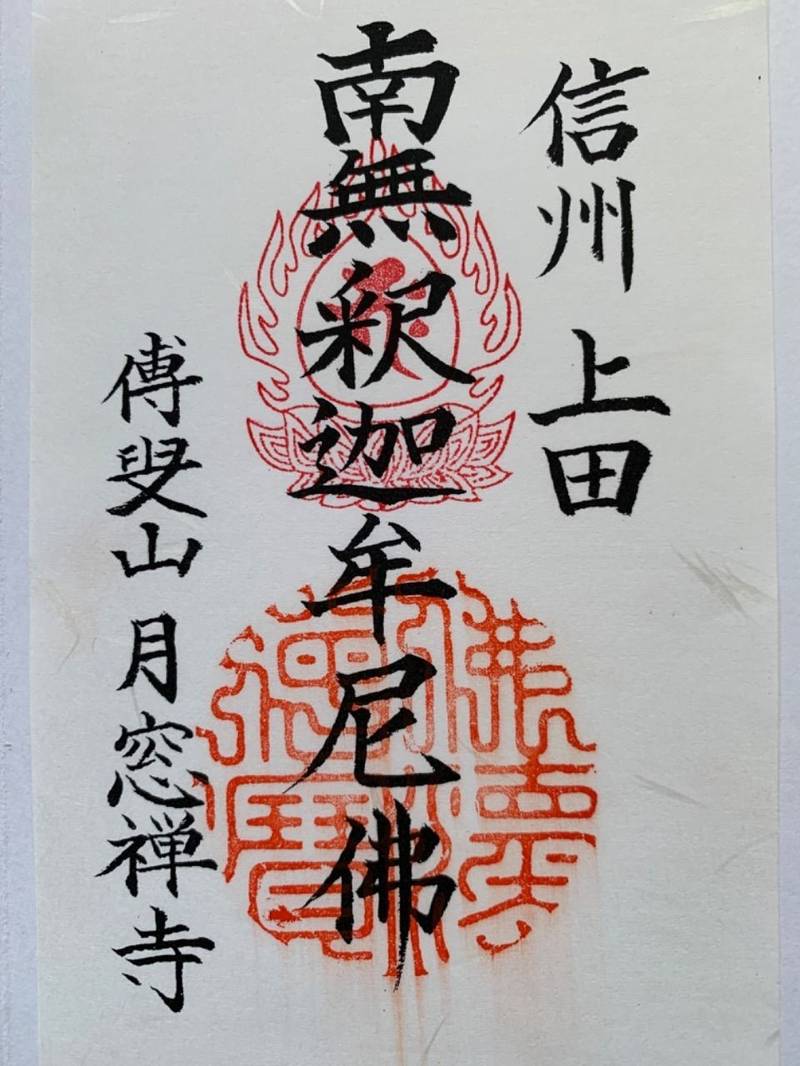 信州 上田
南無釈迦牟尼佛
傅叟山 月窓禅寺